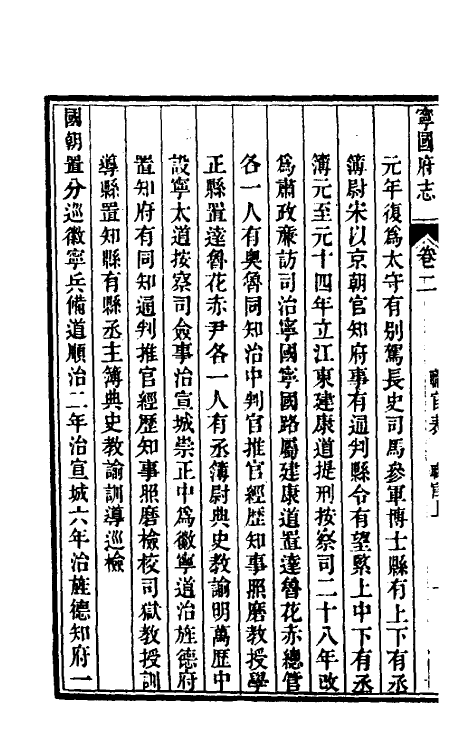 寧國府志
卷二 職官表 職官上
元年復爲太守有別駕長史司馬參軍博士縣有上下有丞
簿尉宋以京朝官知府事有通判縣令有望緊上中下有丞
簿元至元十四年立江東建康道提刑按察司二十八年改
爲肅政廉訪司治寧國寧國路屬建康道置達魯花赤總管
各一人有奧魯同知治中判官推官經歷知事照磨教授學
正縣置達魯花赤尹各一人有丞簿尉典史教諭明萬歷中
設寧太道按察司僉事治宣城崇正中爲徽寧道治旌德府
置知府有同知通判推官經歷知事照磨檢校司獄教授訓
導縣置知縣有縣丞主簿典史教諭訓導巡檢
國朝置分巡徽寧兵備道順治二年治宣城六年治旌德知府一